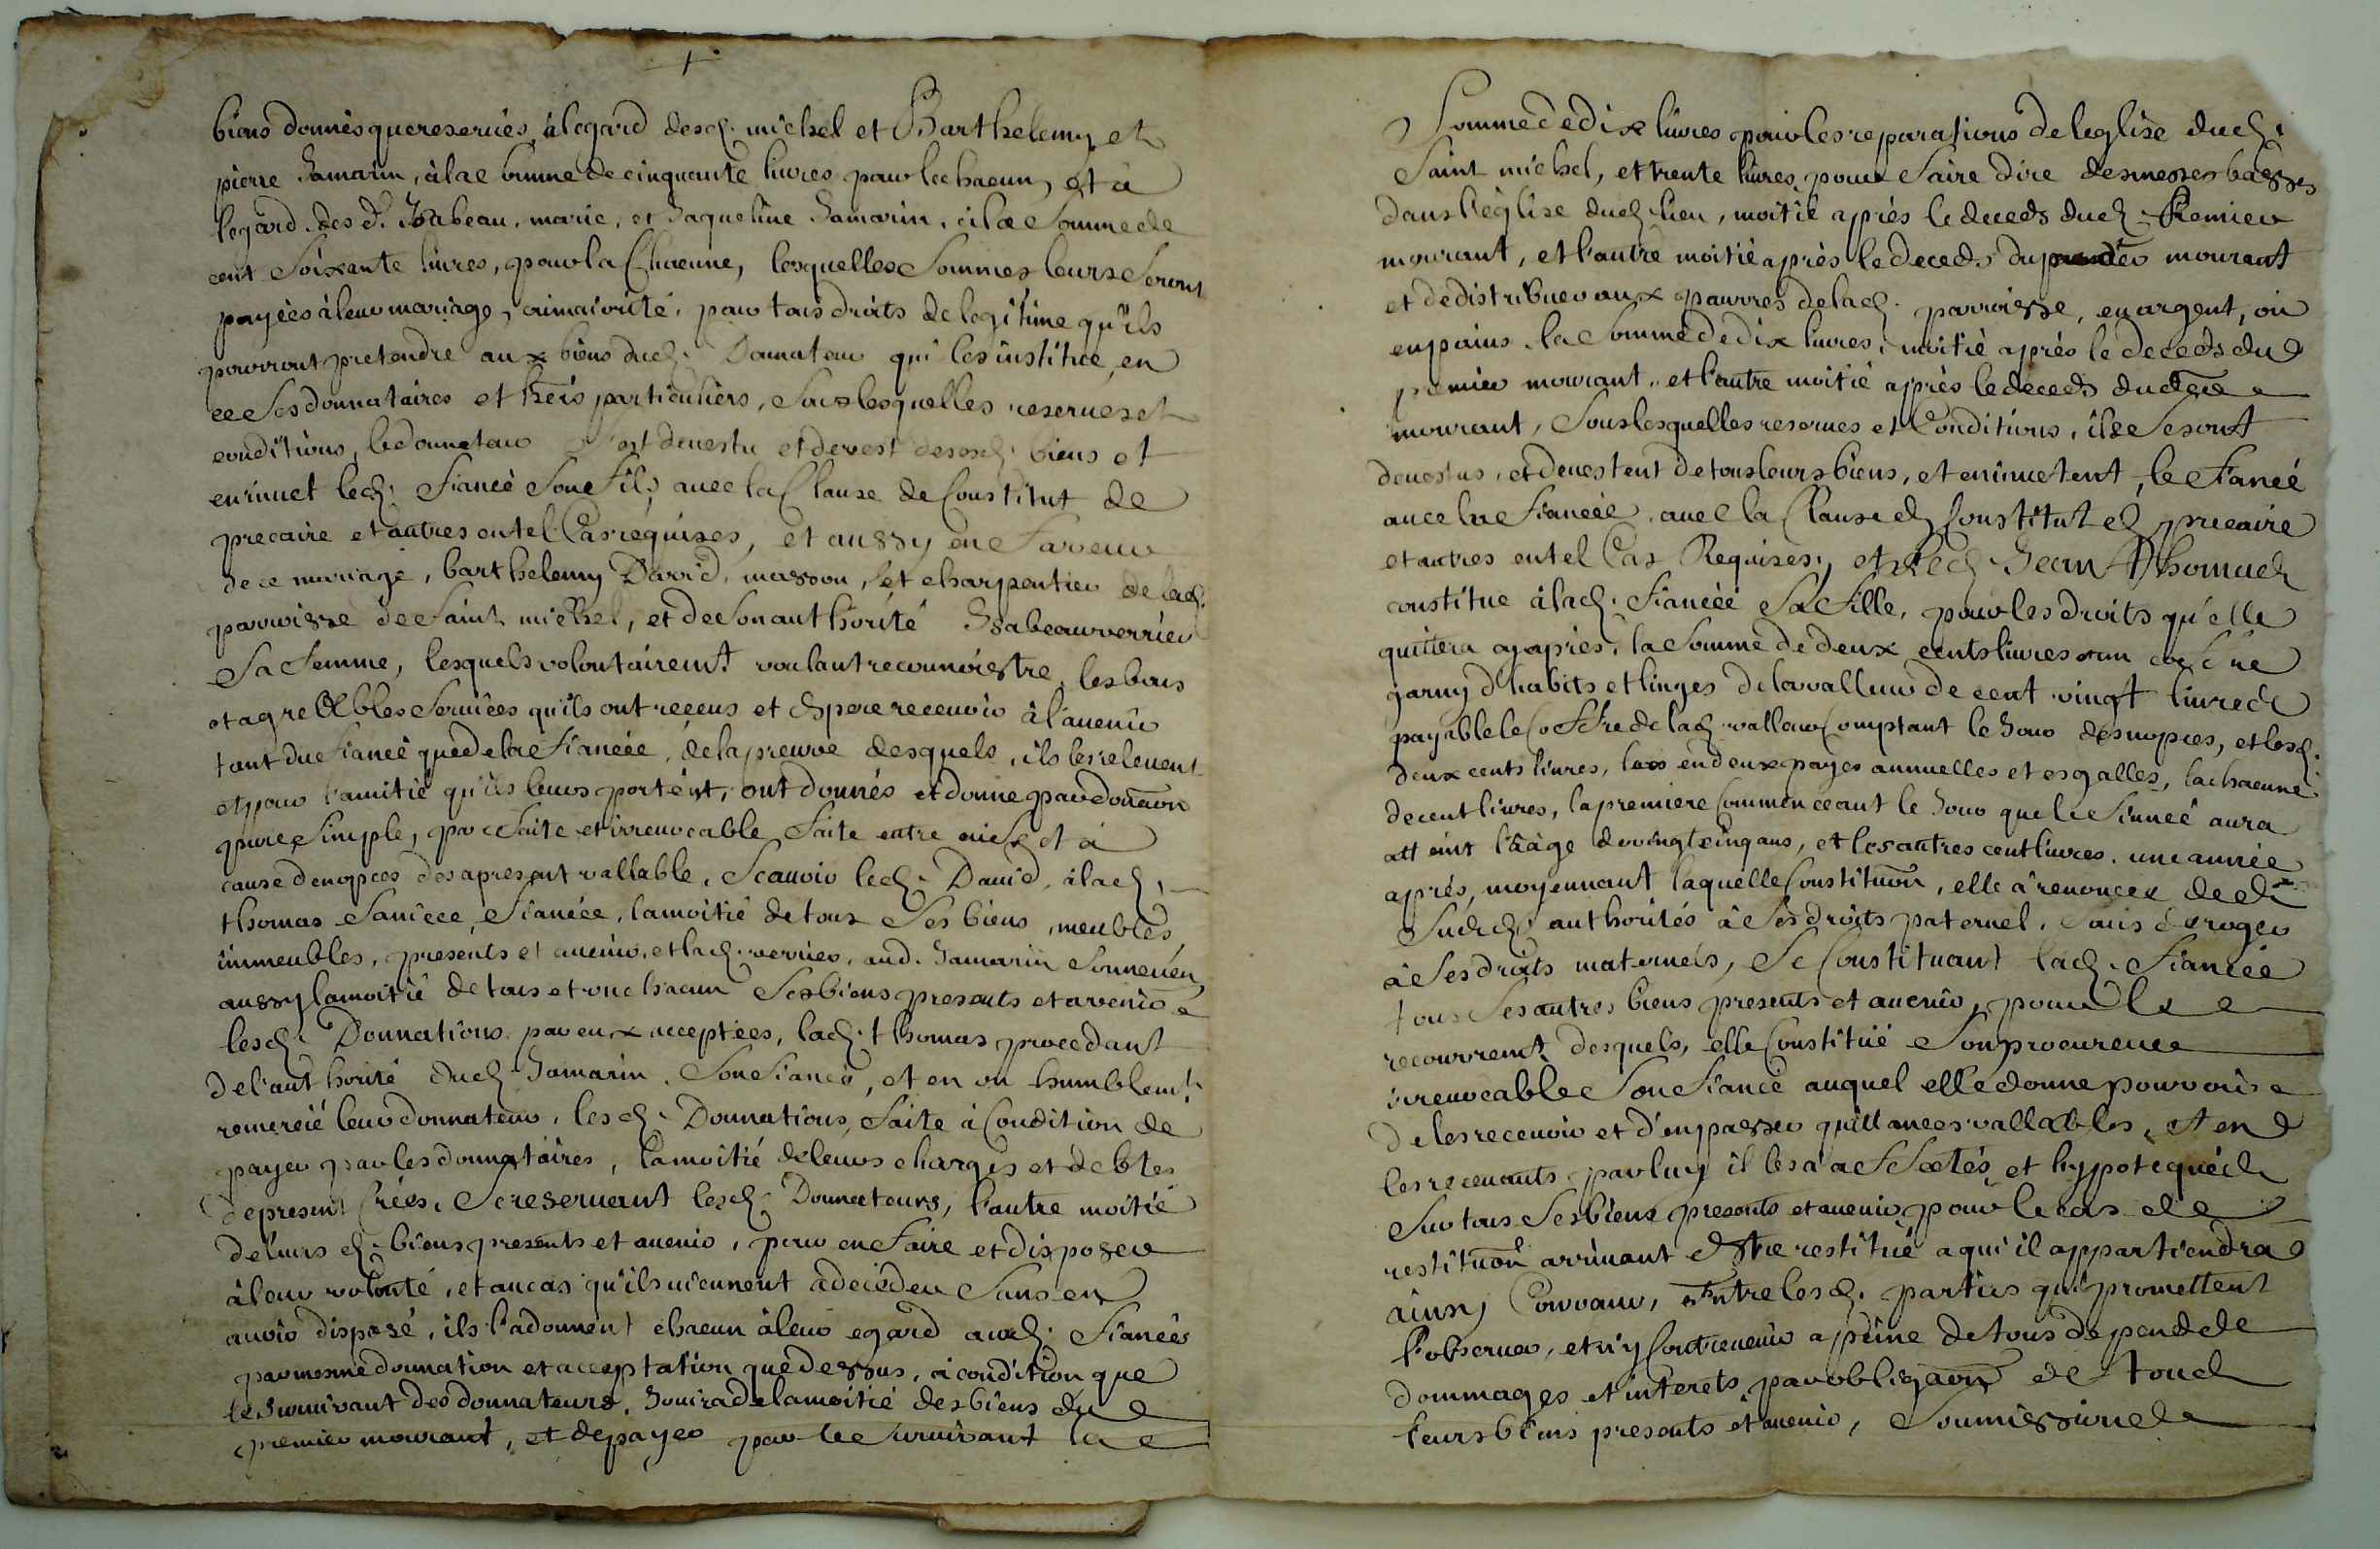 biens donnés que reservés, a legard desd. michel et Barthelemy et
pierre Jamarin, à la somme de cinquante livres pour le chacun, et à
legard des d. Isabeau, marie, et Jaqueline Jamarin, à la Somme de
cent Soixante livres, pour la Chacune, lesquelles Sommes leurs Seront
payées à leur mariage, ou majorité, pour tous droits de legitime qu'ils
pourront pretendre aux biens dud. Donnateur qui les institue, en
ce Ses donnataires et hers particuliers, Sous lesquelles reserves et
conditions, le donnateur S'est devestu et devest desosd. biens et
en invet led. fiancé Son fils avec la Clause de Constitut de
precaire et autres en tel Cas requises, et aussy en faveur
de ce mariage, barthelemy David, masson, et charpentier de lad.
parroisse de saint michel, et de Son authorité Isabeau verrier
Sa femme, lesquels volontairemt voulant reconnoistre, les bons
et agreables Services qu'ils ont receus et espere recevoir à l'avenir
tant du fiancé que de la fiancée, de la preuve desquels, ils les relevent
et pour l'amitié qu'ils leurs portent, ont donnés et donne par donnaon
pure Simple, parfaite et irrevocable, faite entre vifs et à
cause de nopces des apresent vallable, Scavoir led. David, à lad.
thomas fiancée, la moitié de tous Ses biens, meubles,
immeubles, presents et avenir, et lad. verrier, aud. Jamarin Son neveu,
aussy la moitié de tous et un chacun Ses biens presents et avenir
lesd. Donnations par eux acceptées, lad. thomas procedant
de l'authorité dud. Jamarin, Son fiancé, et en on humblemt.
remercié leur donnateur, lesd. Donnations, faite à Condition de
payer par les donnataires, la moitié de leurs charges et debtes
de present Créés, Se reservant lesd. Donnateurs, l'autre moitié
de leurs d. biens presents et avenir, pour en faire et disposer
à leur volonté, et au cas qu'ils viennent à deceder Sans en
avoir disposé, ils l'a donnent chacun à leur egard aud. fiancés
par mesme donnation et acceptation que dessus, à condition que
le Survivant des donnateurs, Jouira de la moitié des biens du
premier mourant, et de payer par le Survivant la
Somme de dix livres pour les reparations de leglise dud.
Saint michel, et trente livres, pour faire dire des messes basses
dans l'église dud. lieu, moitié aprés le deceds dud. Premier
mourant, et l'autre moitié aprés le deceds du mourant
et de distribuer aux pauvres de lad. parroisse, en argent, ou
en pains, la Somme de dix livres, moitié aprés le deceds du
premier mourant, et l'autre moitié aprés le deceds du
mourant, Sous lesquelles reserves et Conditions, ils Se Sont
devestus, et devestent de tous leurs biens, et en invetent, le fiancé
avec la fiancée, avec la Clause de Constitut et precaire
et autres en tel Cas Requises, et led. Jean Thomas
constitue à lad. fiancée Sa fille, pour les droits qu'elle
quittera cy aprés, la Somme de deux cents livres, un coffre
garny d'habits et linges de la valleur de cent vingt livres
payable le Coffre de lad. valleur Comptant le Jour des nopces, et lesd.
deux cents livres, en deux payes annuelles et esgalles, la chacune
de cent livres, la premiere Commenceant le Jour que le fiancé aura
atteint l'âage de vingt cinq ans, et les autres cent livres, une année
aprés, moyennant laquelle Constituon, elle à renoncée de
Sud. authorités à Ses droits paternel, Sans deroger
à Ses droits maternels, Se Constituant lad. fiancée
tous Ses autres biens presents et avenir, pour le
recouvremt desquels, elle Constitue Son procureur
irrevocable Son fiancé auquel elle donne pouvoir
de les recevoir et d'en passer quittances vallables, et en
les recevants par luy il les a affectés et hypotequés
Sur tous Ses biens presents et avenir pour le cas de
restituon arrivant Estre restitué a qui il appartiendra
ainsy Convenu, Entre lesd. parties qui promettent
l'observer, et n'y Contrevenir a peine de tous depens de
dommages et interets, par obligaon de tous
leurs biens presents et avenir, Soumissions de